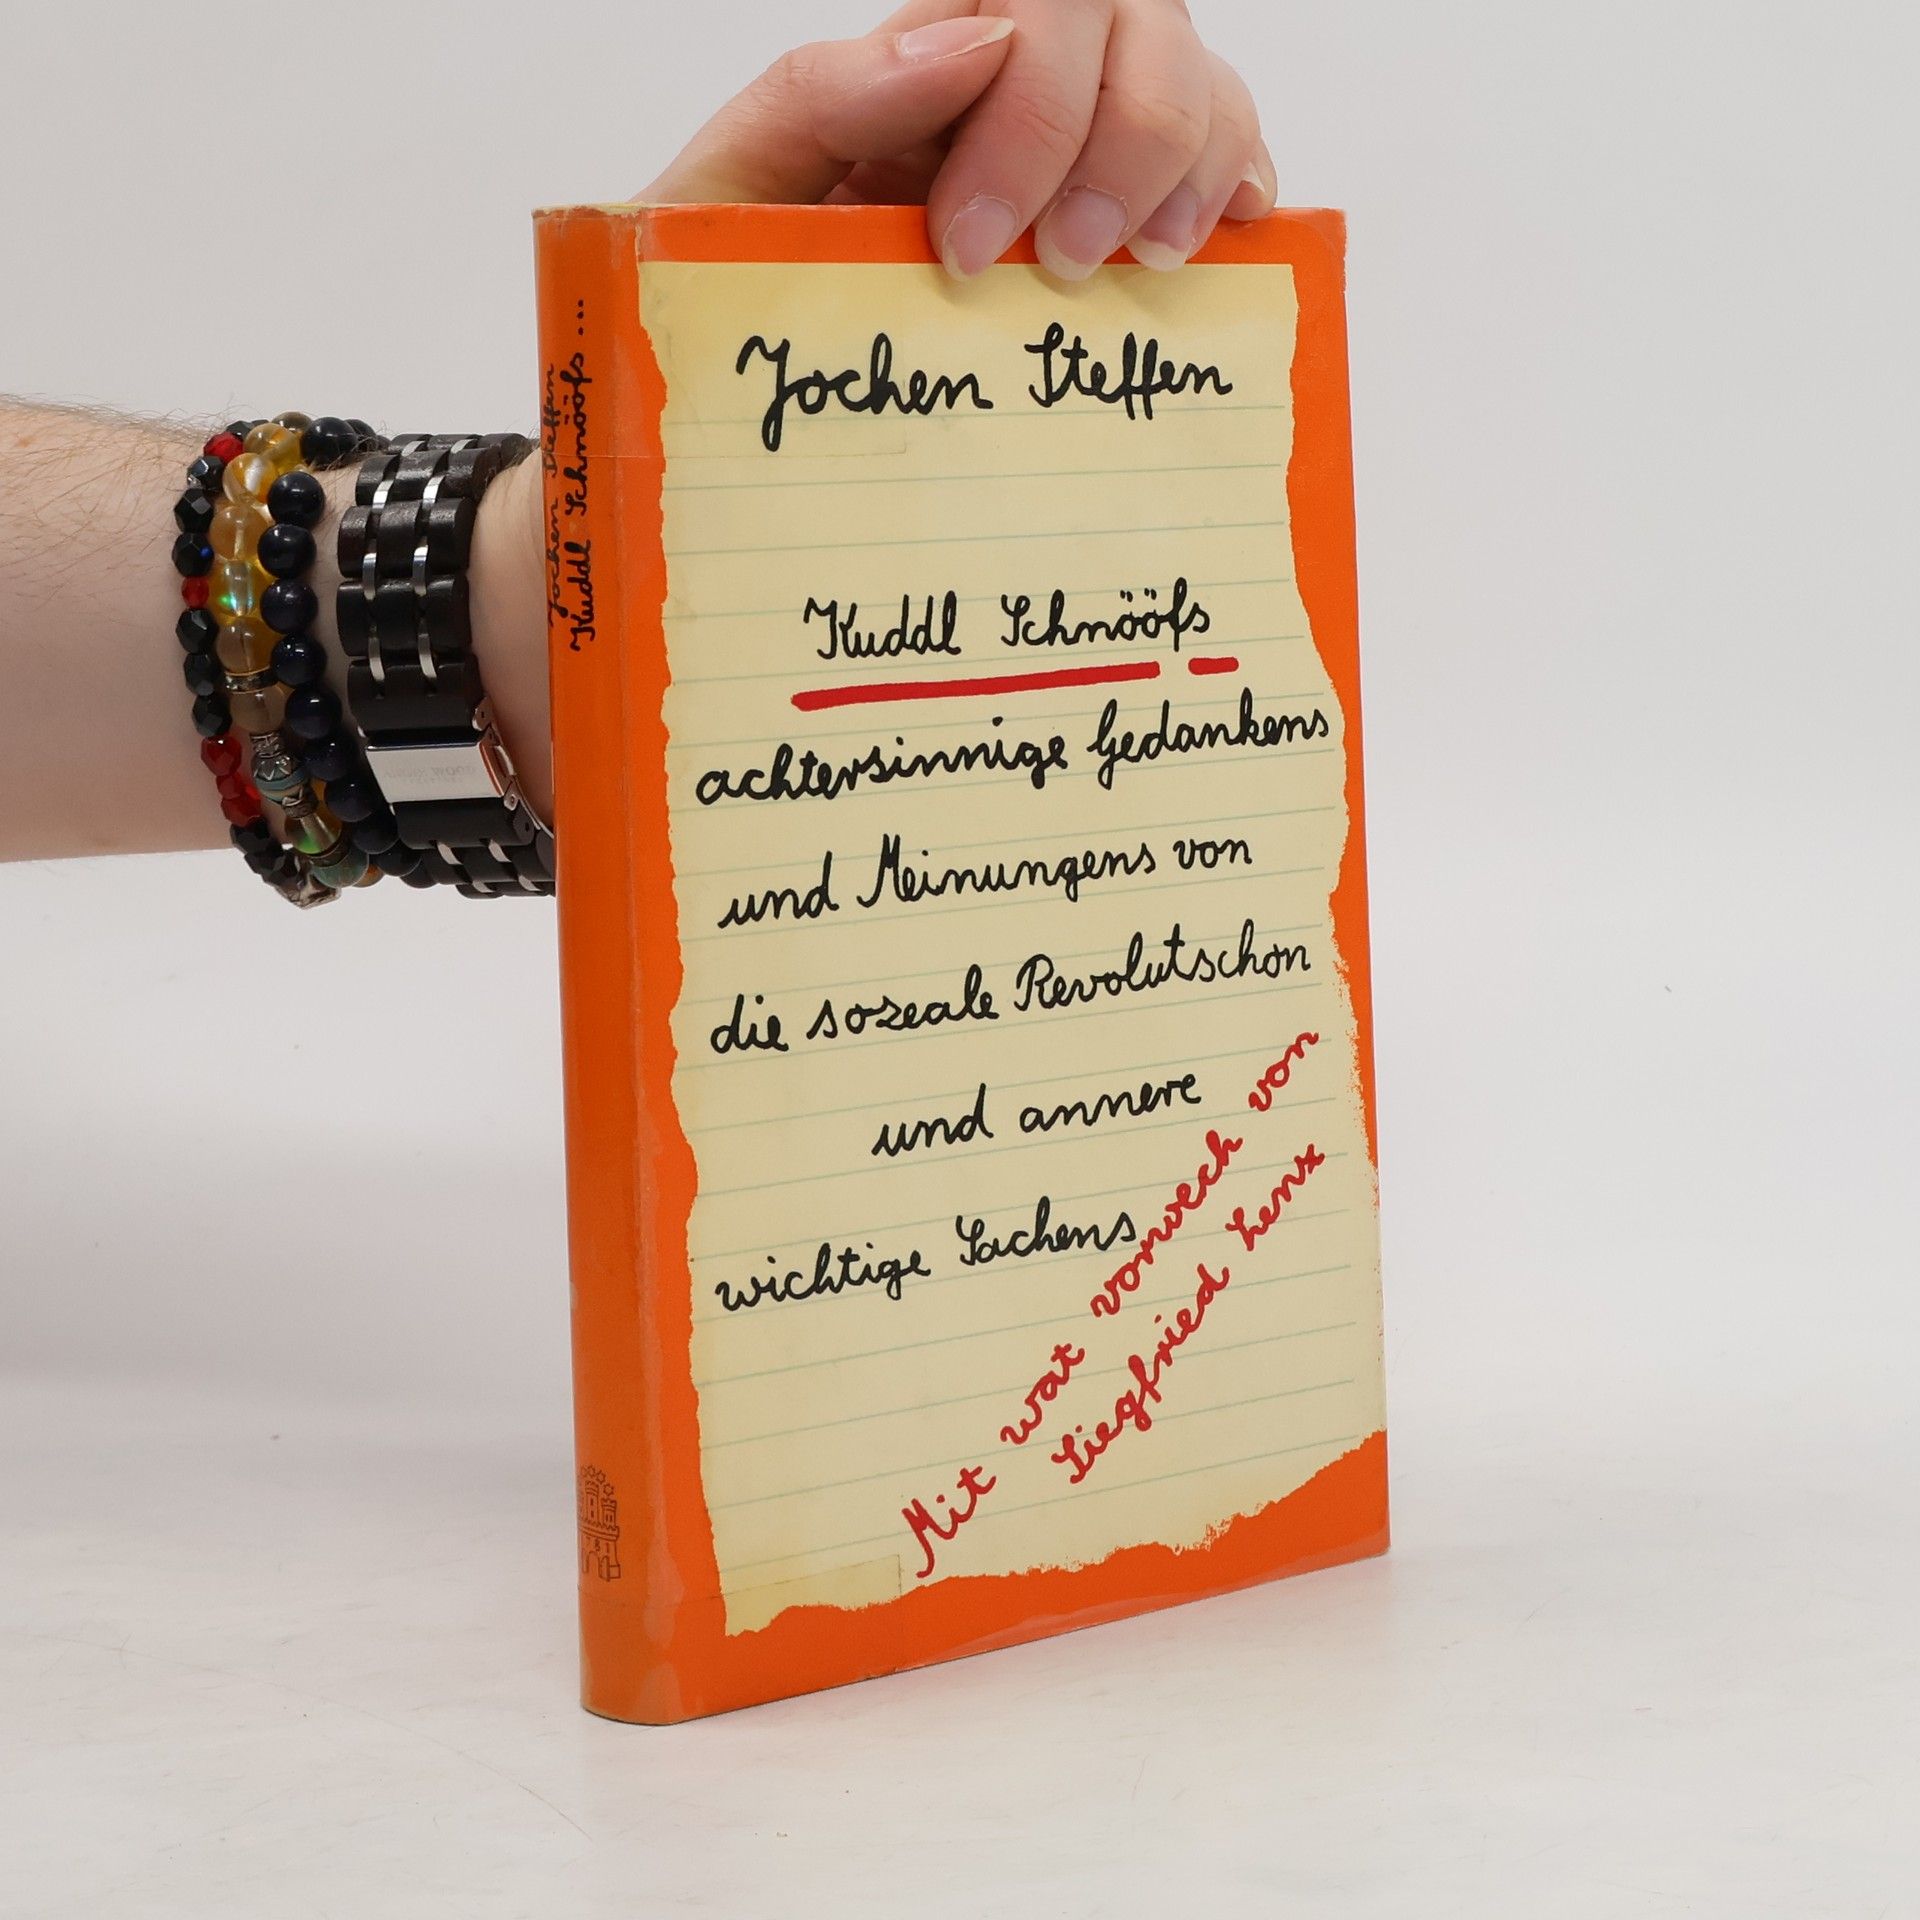 Jochen Steffen
Kuddl Schnööfs
achtersinnige Gedankens
und Meinungens von
die sozeale Revolutschon
und annere
wichtige Sachens
Mit wat vorwech von
Siegfried Lenz
Jochen Steffen
Kuddl Schnööfs...